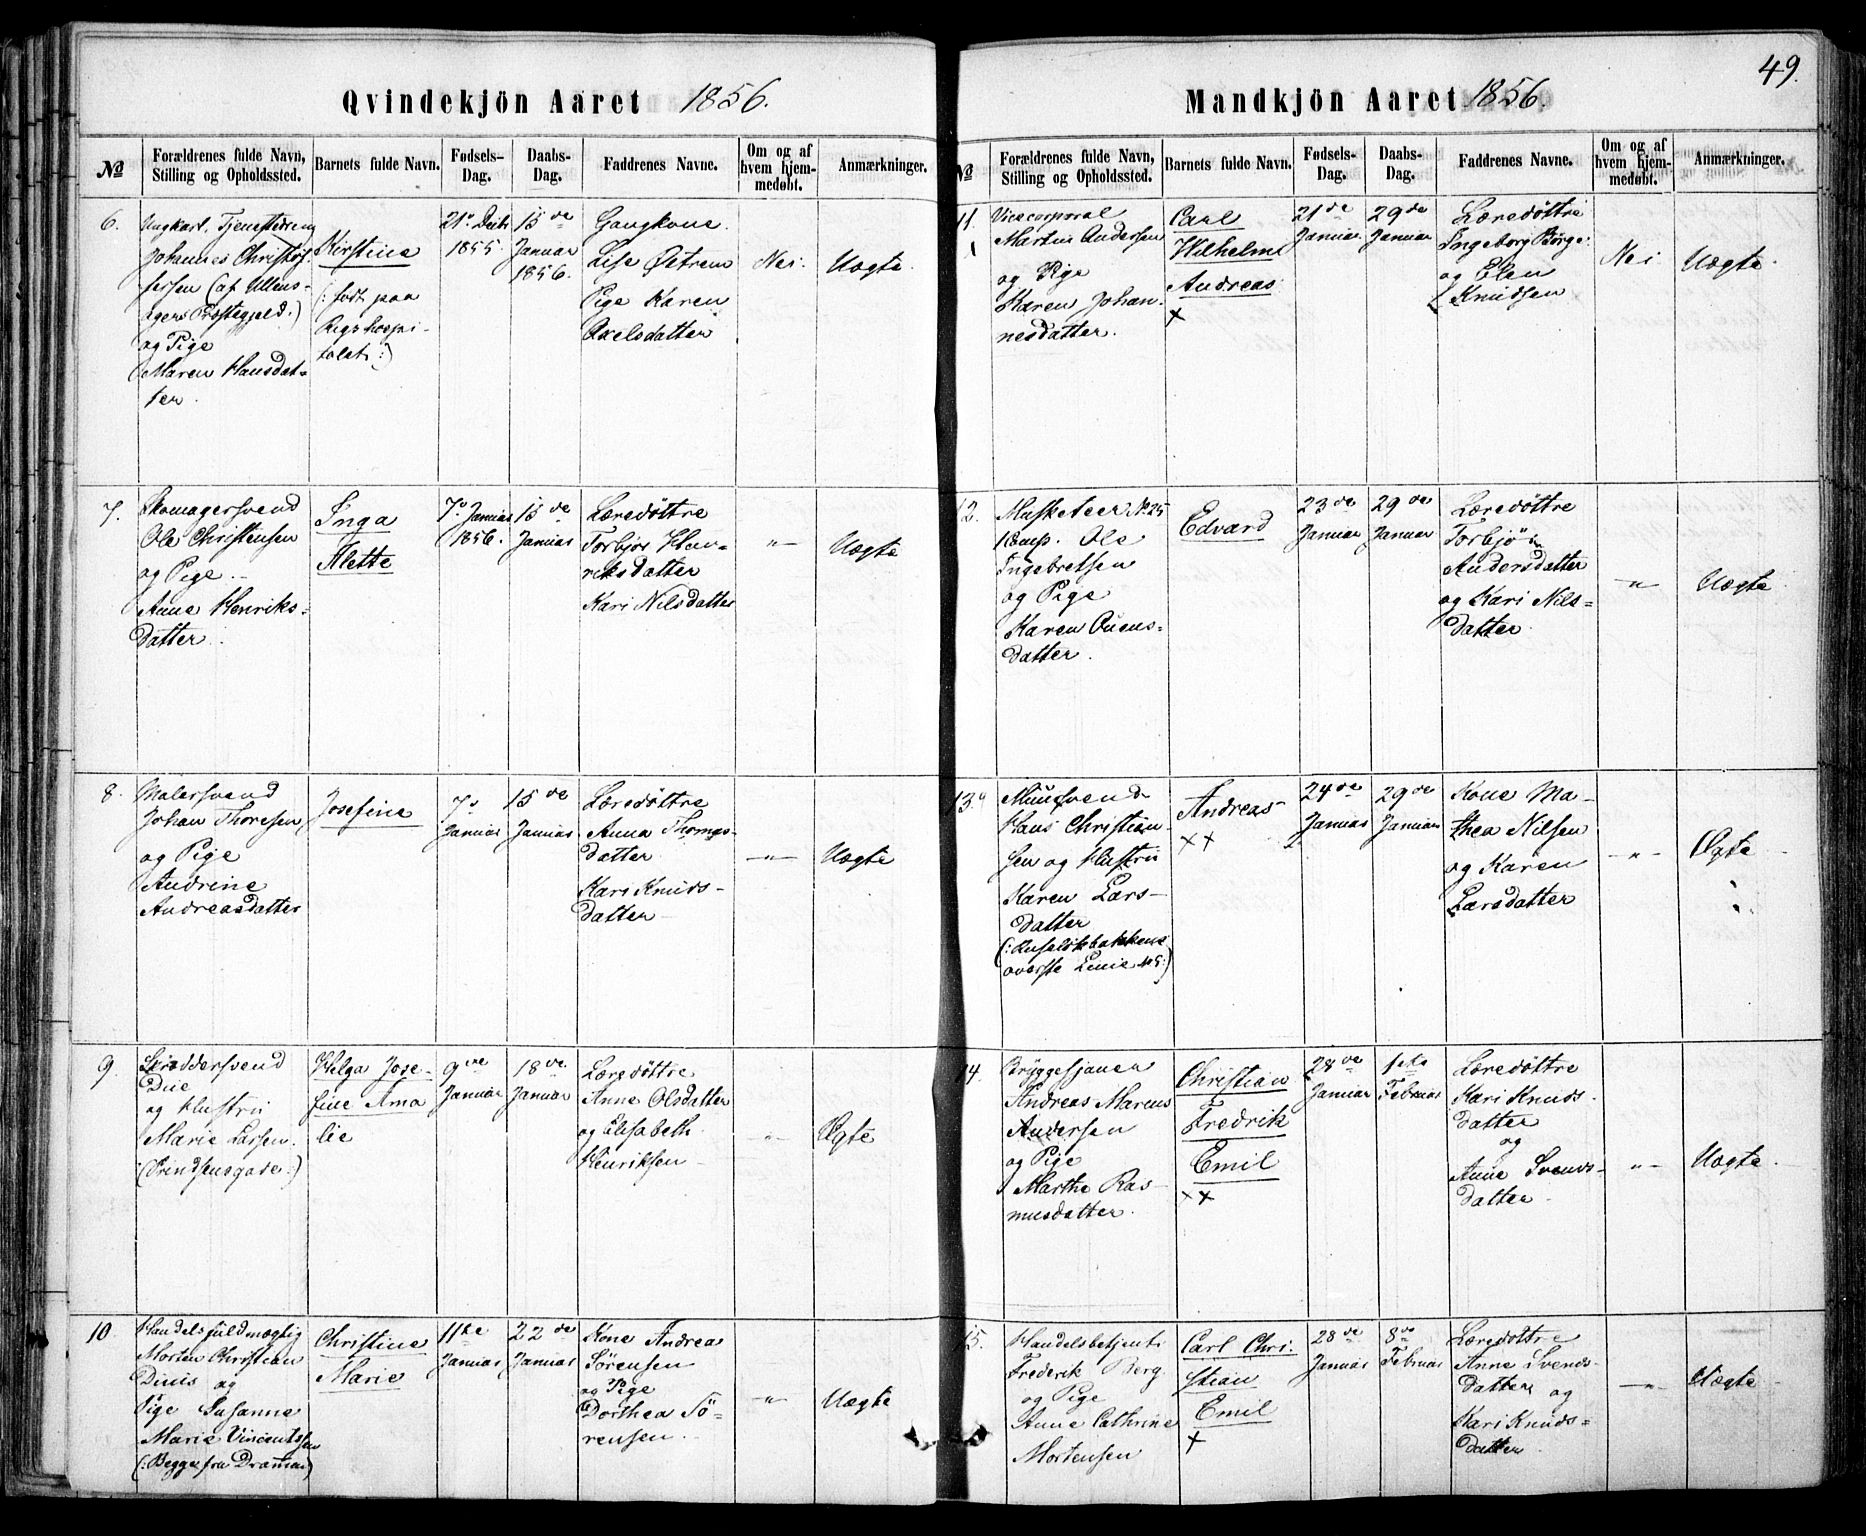 49.
Qvindekjön Aaret 1856.
No
Forældrenes fulde Navn, Stilling og Opholdssted.
Barnets fulde Navn.
Fødsels-Dag.
Daabs-Dag.
Faddrenes Navne.
Om og af hvem hjem-medøbt.
Anmærkninger.
6.
Ungkarl, Tjenestedreng
Johannes Christof-
fersen (af Ullens-
agers Præstegjeld.)
og Pige
Maren Hansdat-
ter.
Kirstine
(: født paa
Rigshospi-
talet :)
21de Decbr
1855.
15de
Januar
1856.
Gangkone
Lise Østrem
Pige Karen
Axelsdatter
Nei.
Uægte.
7.
Skomagersvend
Ole Christensen
og Pige
Anne Henriks-
datter.
Inga
Alette
7de Januar
1856.
15de
Januar
Læredøttre
Torbjør Hen-
riksdatter
Kari Nilsdatter
"
Uægte
8.
Malersvend
Johan Thoresen
og Pige
Andrine
Andreasdatter
Josefine
7de
Januar
15de
Januar
Læredøttre
Anna Thomas-
datter
Kari Knuds-
datter
"
Uægte
9.
Skrædersvend
Due
og Hustru
Marie Larsen.
(Prindsensgade:)
Helga Jose-
fine Ama
lie
9de
Januar
18de
Januar
Læredøttre
Anne Olsdatter
og Elisabeth
Henriksen
"
Ægte
10.
Handelsfuldmægtig
Morten Christian
og
Pige Susanne
Marie Vincentssen
(: Begge fra Drammen)
Christine
Marie
11te
Januar
22de
Januar
Kone Andrea
Sørensen
og Pige
Dorthea Sö-
rensen.
"
Uægte
Mandkjön Aaret 1856.
No
Forældrenes fulde Navn, Stilling og Opholdssted.
Barnets fulde Navn.
Fødsels-Dag.
Daabs-Dag.
Faddrenes Navne.
Om og af hvem hjem-medøbt.
Anmærkninger.
11.
Vicecorporal
Martin Andersen
og Pige
Karen Johan-
nesdatter.
Carl
Wilhelm
Andreas
x
21de
Januar
29de
Januar
Læredøttre
Ingeborg Børge
og Elen
Knudsen
Nei
Uægte
12.
Musketeer No 25
Komp. Ole
Ingebretsen
og Pige
Karen Ouens-
datter.
Edvard
23de
Januar
29de
Januar
Læredøttre
Torbjör
Andersdatter
og Kari Nils-
datter
"
Uægte
13.
Muursvend
Hans Christian-
sen og Hustru
Karen Lars-
datter
(: Ruseløkbakkens
øverste Linie No 5:)
Andreas
xx
24de
Januar
29de
Januar
Kone Ma-
thea Nilsen
og Karen
Larsdatter
"
Ægte
14.
Bryggesjauer
Andreas Marcus
Andersen
og Pige
Marthe Ras-
musdatter.
Christian
Fredrik
Emil
xx
28de
Januar
1ste
Februar
Læredøttre
Kari Knuds-
datter
og
Anne Svends-
datter
"
Uægte
15.
Handelsbetjent
Frederik Berg
og Pige
Anne Cathrine
Mortensen
Carl Chri-
stian
Emil
x
28de
Januar
8de
Februar
Læredøttre
Anne Svends-
datter og
Kari Knuds-
datter
"
Uægte